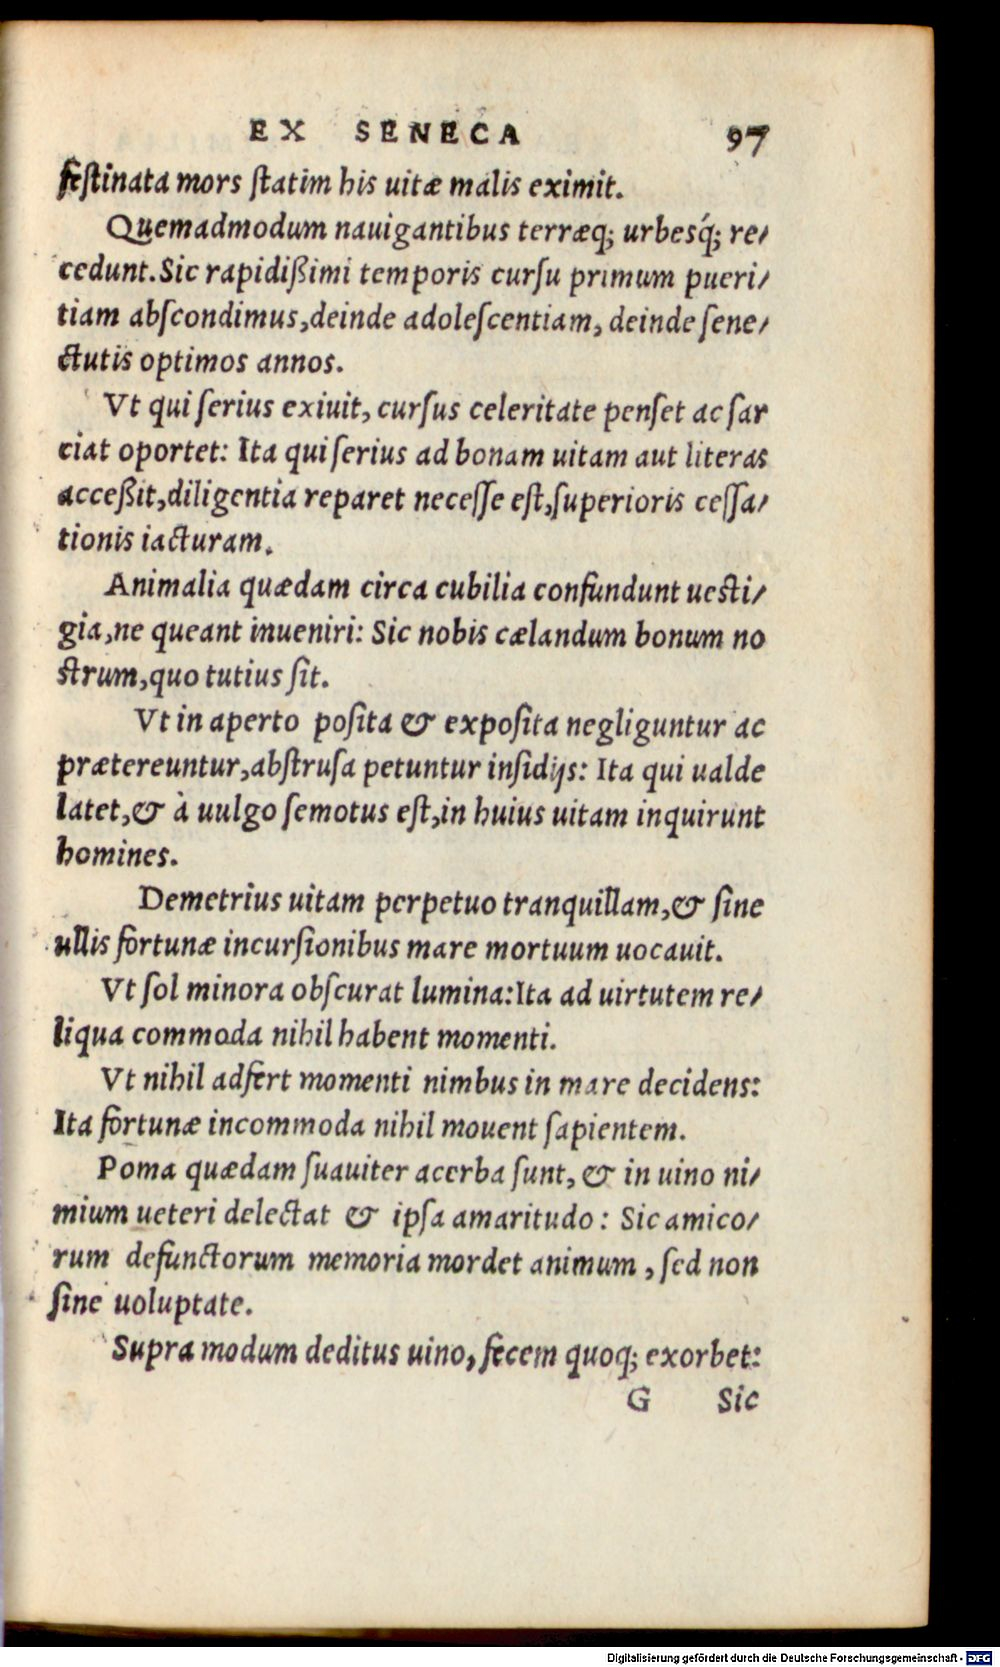 EX SENECA 97
festinata mors ſtatim his uitæ malis eximit.
Quemadmodum nauigantibus terræq; urbesq́; re/
cedunt. Sic rapidißimi temporis curſu primum pueri/
tiam abſcondimus, deinde adoleſcentiam, deinde ſene/
ctutis optimos annos.
Vt qui ſerius exiuit, curſus celeritate penſet ac ſar
ciat oportet: Ita qui ſerius ad bonam uitam aut literas
acceßit, diligentia reparet neceſſe eſt, ſuperioris ceſſa/
tionis iacturam.
Animalia quædam circa cubilia confundunt ueſti/
gia, ne queant inueniri: Sic nobis cælandum bonum no
ſtrum, quo tutius ſit.
Vt in aperto poſita & expoſita negliguntur ac
prætereuntur, abſtruſa petuntur inſidijs: Ita qui ualde
latet, & à uulgo ſemotus eſt, in huius uitam inquirunt
homines.
Demetrius uitam perpetuo tranquillam, & ſine
ullis fortunæ incurſionibus mare mortuum uocauit.
Vt ſol minora obſcurat lumina: Ita ad uirtutem re/
liqua commoda nihil habent momenti.
Vt nihil adfert momenti nimbus in mare decidens:
Ita fortunæ incommoda nihil mouent ſapientem.
Poma quædam ſuauiter acerba ſunt, & in uino ni/
mium ueteri delectat & ipſa amaritudo: Sic amico/
rum defunctorum memoria mordet animum, ſed non
ſine uoluptate.
Supra modum deditus uino, fecem quoq; exorbet:
G Sic
Digitalisierung gefördert durch die Deutsche Forschungsgemeinschaft - DFG